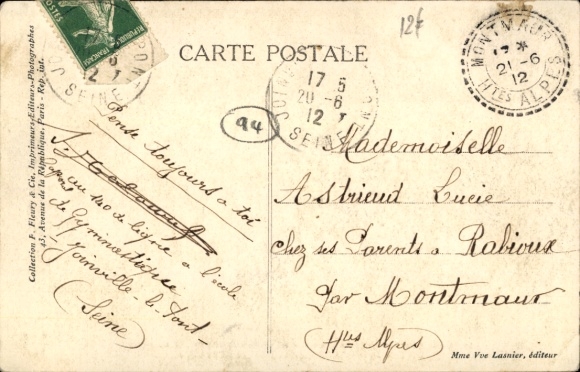 12f
CARTE POSTALE
MONTMAUR
21-6
12
Htes ALPES
17 5
20-6
12
SEINE
94
Pense toujours à toi
au 140 de ligne à l'école
de Gymnastique
Joinville-le-Pont
(Seine)
Mademoiselle
Astrieud Lucie
chez ses Parents à Rabioux
par Montmaur
(Htes Alpes)
Collection F. Fleury & Cie, Imprimeurs-Editeurs-Photographes
43, Avenue de la République, Paris - Rep. int.
Mme Vve Lasnier, éditeur